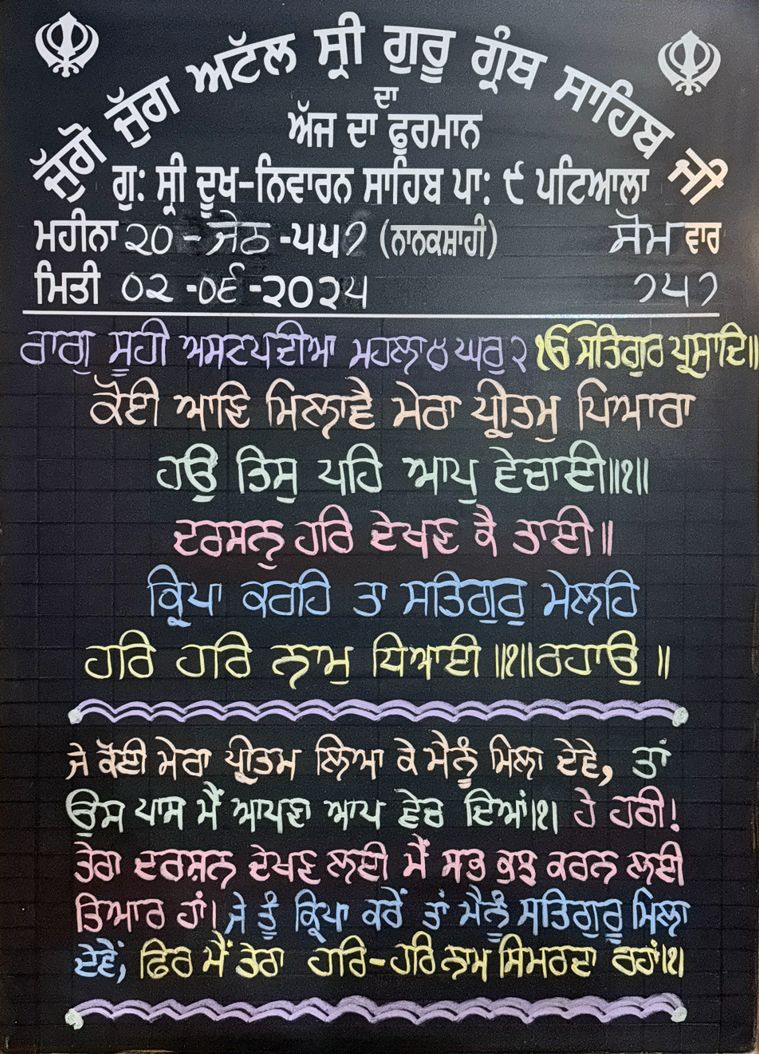 ਜੁੱਗੋ ਜੁੱਗ ਅਟੱਲ ਸ੍ਰੀ ਗੁਰੂ ਗ੍ਰੰਥ ਸਾਹਿਬ ਜੀ
ਦਾ
ਅੱਜ ਦਾ ਫੁਰਮਾਨ
ਗੁ: ਸ੍ਰੀ ਦੂਖ-ਨਿਵਾਰਨ ਸਾਹਿਬ ਪਾ: ੯ ਪਟਿਆਲਾ
ਮਹੀਨਾ ੨੦ - ਜੇਠ -੫੫੭ (ਨਾਨਕਸ਼ਾਹੀ) ਸੋਮ ਵਾਰ
ਮਿਤੀ ੦੨ -੦੬ -੨੦੨੫ ੭੫੭
ਰਾਗੁ ਸੂਹੀ ਅਸਟਪਦੀਆ ਮਹਲਾ ੪ ਘਰੁ ੨ ੴ ਸਤਿਗੁਰ ਪ੍ਰਸਾਦਿ॥
ਕੋਈ ਆਣਿ ਮਿਲਾਵੈ ਮੇਰਾ ਪ੍ਰੀਤਮੁ ਪਿਆਰਾ
ਹਉ ਤਿਸੁ ਪਹਿ ਆਪੁ ਵੇਚਾਈ॥੧॥
ਦਰਸਨੁ ਹਰਿ ਦੇਖਣ ਕੈ ਤਾਈ॥
ਕ੍ਰਿਪਾ ਕਰਹਿ ਤਾ ਸਤਿਗੁਰੁ ਮੇਲਹਿ
ਹਰਿ ਹਰਿ ਨਾਮੁ ਧਿਆਈ॥੧॥ਰਹਾਉ॥
ਜੇ ਕੋਈ ਮੇਰਾ ਪ੍ਰੀਤਮ ਲਿਆ ਕੇ ਮੈਨੂੰ ਮਿਲਾ ਦੇਵੇ, ਤਾਂ
ਉਸ ਪਾਸ ਮੈਂ ਆਪਣਾ ਆਪ ਵੇਚ ਦਿਆਂ।੧। ਹੇ ਹਰੀ!
ਤੇਰਾ ਦਰਸ਼ਨ ਦੇਖਣ ਲਈ ਮੈਂ ਸਭ ਕੁਝ ਕਰਨ ਲਈ
ਤਿਆਰ ਹਾਂ। ਜੇ ਤੂੰ ਕ੍ਰਿਪਾ ਕਰੇਂ ਤਾਂ ਮੈਨੂੰ ਸਤਿਗੁਰੂ ਮਿਲਾ
ਦੇਵੈਂ, ਫਿਰ ਮੈਂ ਤੇਰਾ ਹਰਿ-ਹਰਿ ਨਾਮ ਸਿਮਰਦਾ ਰਹਾਂ।੧।